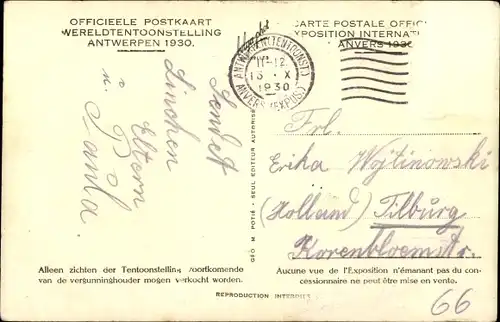 OFFICIEELE POSTKAART
WERELDTENTOONSTELLING
ANTWERPEN 1930.
CARTE POSTALE OFFICI
XPOSITION INTERNATI
ANVERS 1930
ANTWERPEN (TENTOONST.)
11-12
13 X
1930
ANVERS (EXPOS.)
Sendet
Linchen
Eltern
u. Paula.
GÉO M. POTIÉ - SEUL EDITEUR AUTORISÉ
Frl.
Erika Wojtinowski
(Holland) Tilburg
Korenbloemstr.
Alleen zichten der Tentoonstelling voortkomende
van de vergunninghouder mogen verkocht worden.
Aucune vue de l'Exposition n'émanant pas du con-
cessionnaire ne peut être mise en vente.
REPRODUCTION INTERDITE
66